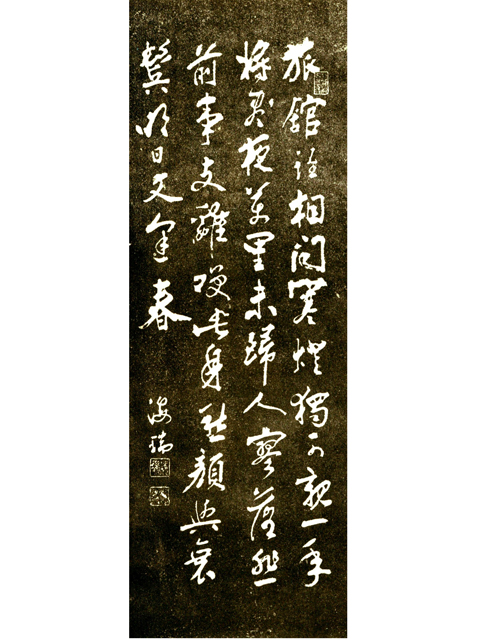 旅館誰相問寒燈獨可親一年
將盡夜萬里未歸人寥落悲
前事支離咲此身愁顏與衰
鬢明日又逢春
海瑞